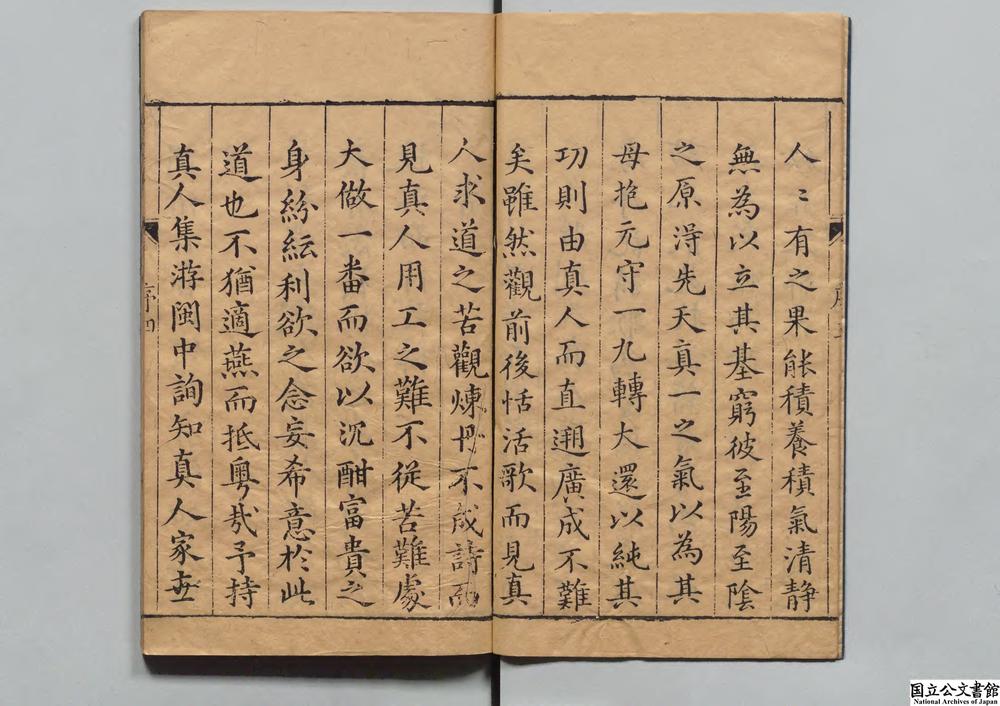 人〻有之果能積養積氣清靜
無為以立其基窮彼至陽至陰
之原淂先天真一之氣以為其
母抱元守一九轉大還以純其
功則由真人而直遡廣成不難
矣雖然觀前後恬活歌而見真
人求道之苦觀煉丹不成詩而
見真人用工之難不從苦難處
大做一番而欲以沉酣富貴之
身紛紜利欲之念妄希意於此
道也不猶適燕而抵粵哉予持
真人集游閩中詢知真人家世
序四
国立公文書館
National Archives of Japan